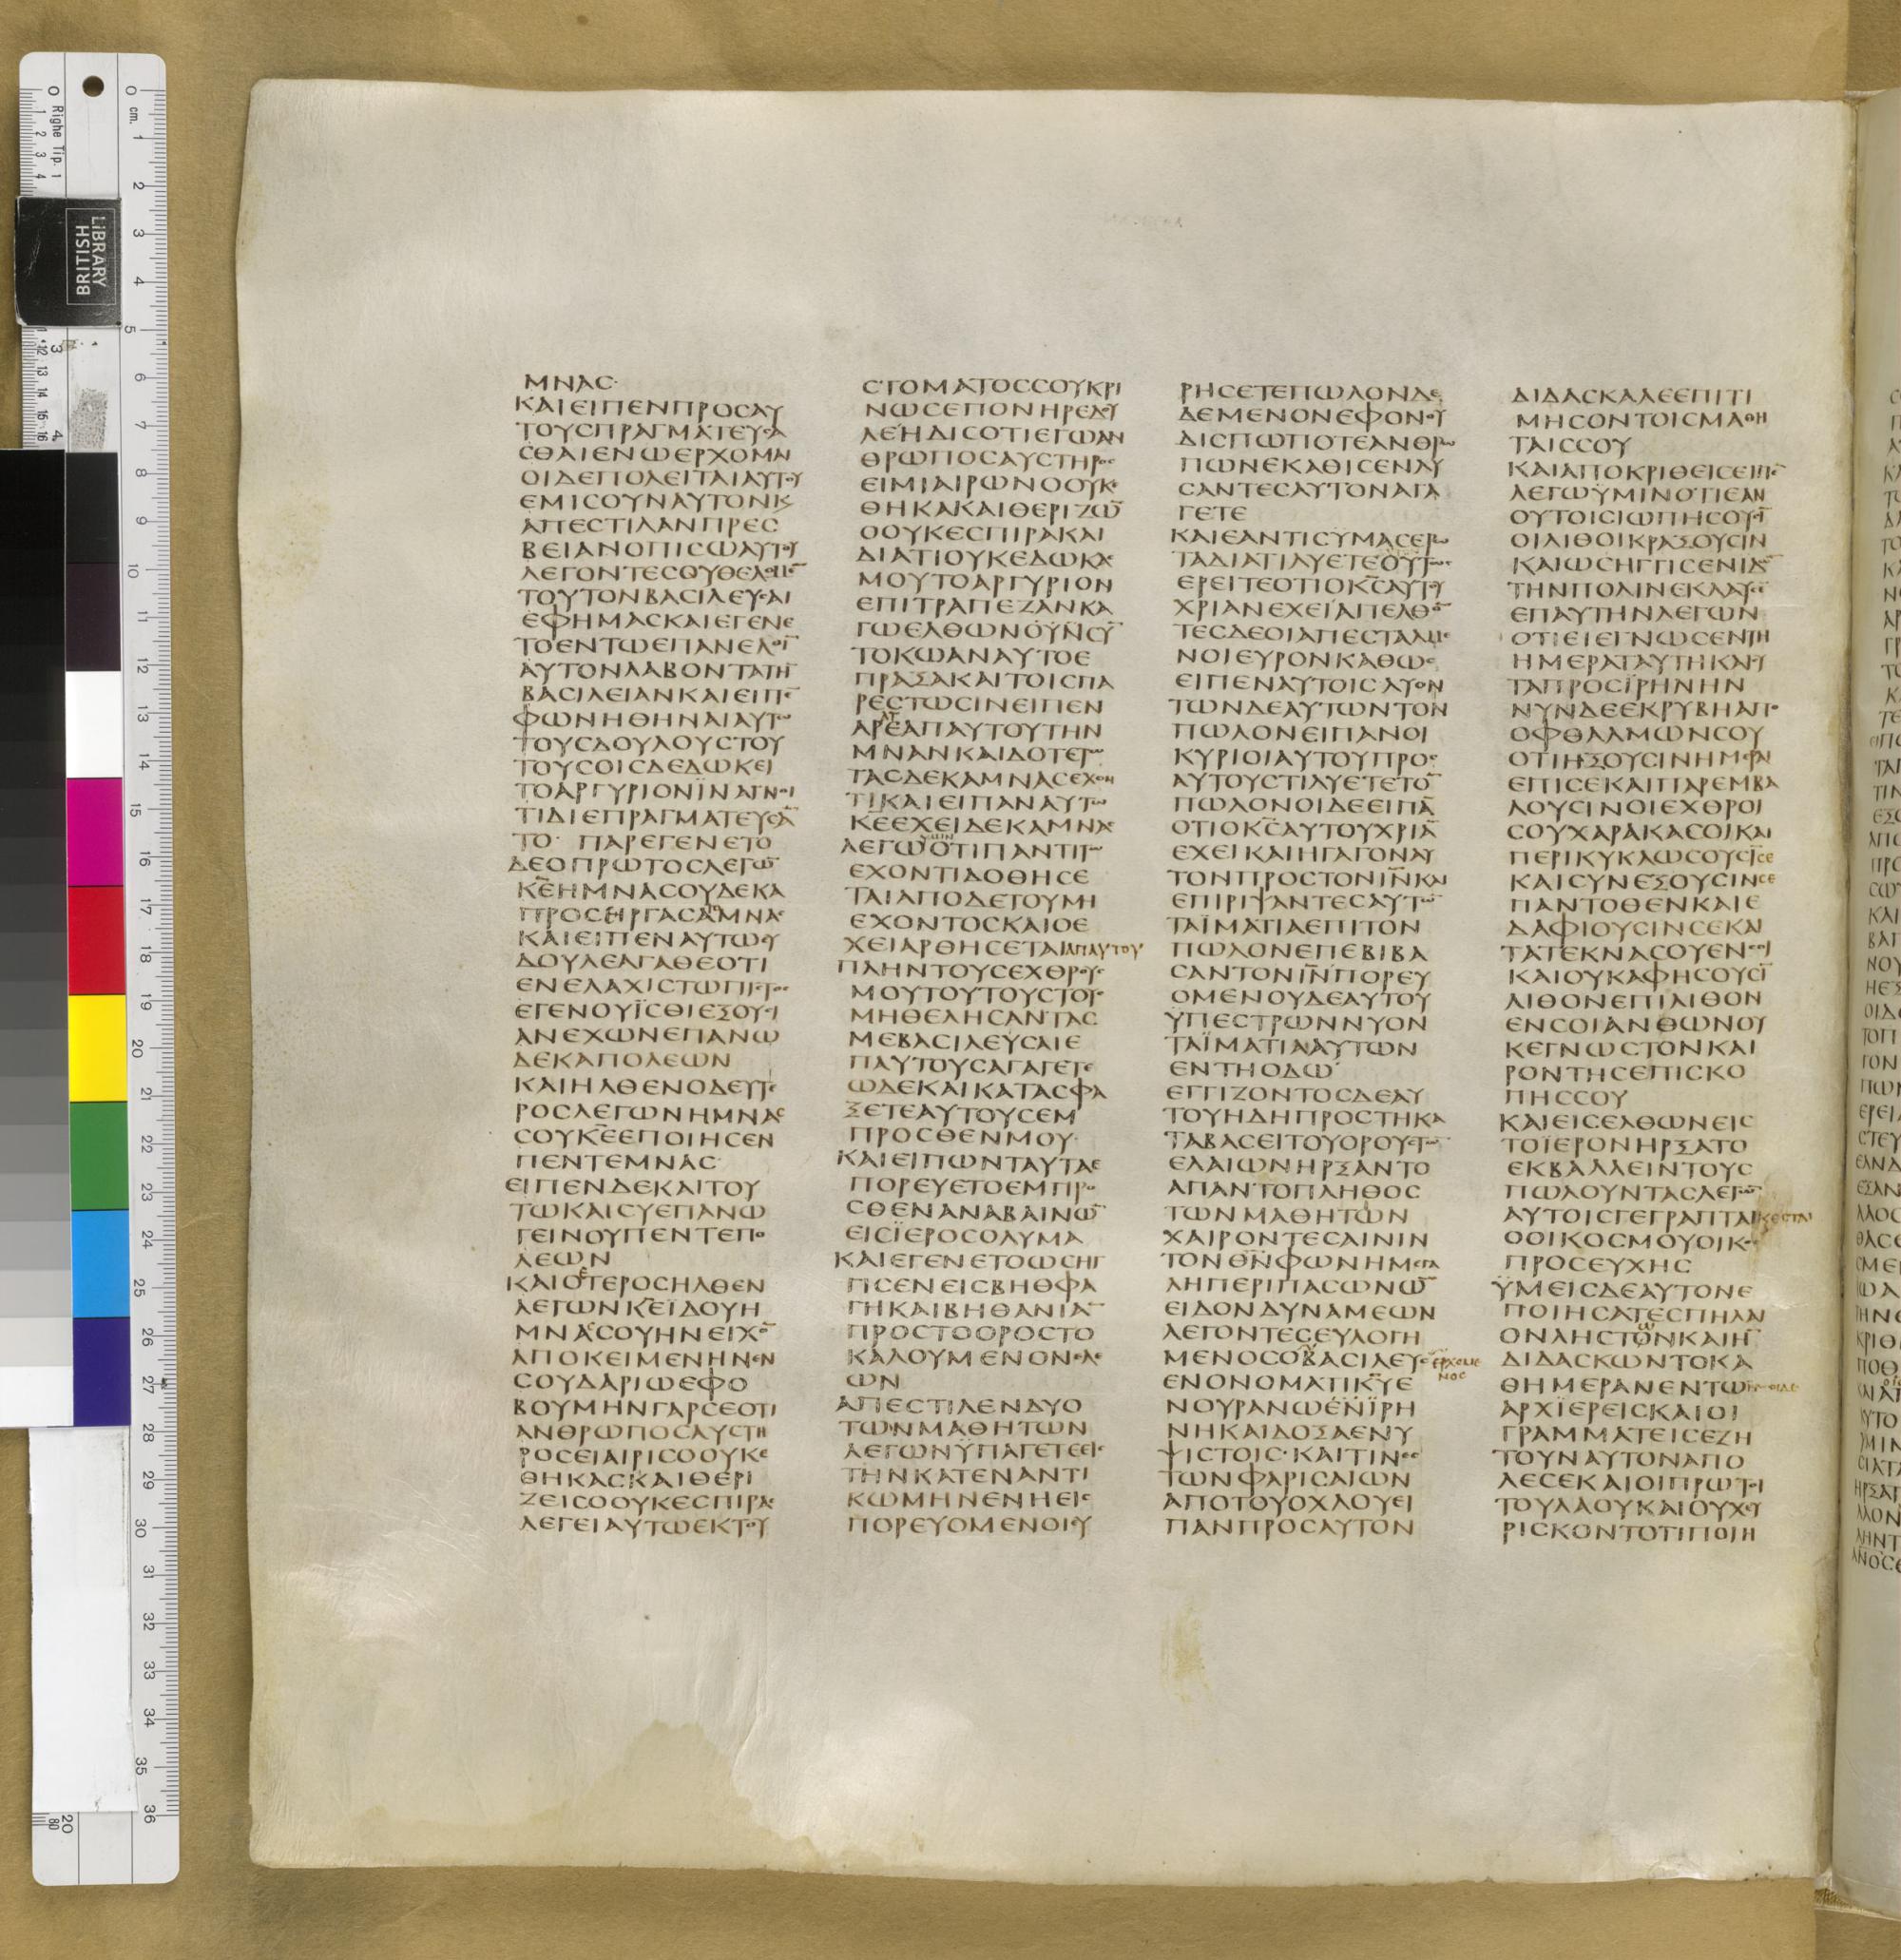 ΜΝΑC·
ΚΑΙΕΙΠΕΝΠΡΟCΑΥ
ΤΟΥCΠΡΑΓΜΑΤΕΥCΑ
CΘΑΙΕΝΩΕΡΧΟΜΑΙ
ΟΙΔΕΠΟΛΕΙΤΑΙΑΥΤΟΥ
ΕΜΙCΟΥΝΑΥΤΟΝΚ
ΑΠΕCΤΙΛΑΝΠΡΕC
ΒΕΙΑΝΟΠΙCΩΑΥΤΟΥ
ΛΕΓΟΝΤΕCΟΥΘΕΛΟΜΕ̅
ΤΟΥΤΟΝΒΑCΙΛΕΥCΑΙ
ΕΦΗΜΑCΚΑΙΕΓΕΝΕ
ΤΟΕΝΤΩΕΠΑΝΕΛΘΙ̅
ΑΥΤΟΝΛΑΒΟΝΤΑΤΗ̅
ΒΑCΙΛΕΙΑΝΚΑΙΕΙΠΕ̅
ΦΩΝΗΘΗΝΑΙΑΥΤΩ
ΤΟΥCΔΟΥΛΟΥCΤΟΥ
ΤΟΥCΟΙCΔΕΔΩΚΕΙ
ΤΟΑΡΓΥΡΙΟΝΪΝΑΓΝΟΙ
ΤΙΔΙΕΠΡΑΓΜΑΤΕΥCΑ̅
ΤΟ· ΠΑΡΕΓΕΝΕΤΟ
ΔΕΟΠΡΩΤΟCΛΕΓΩ̅
ΚΕ̅ΗΜΝΑCΟΥΔΕΚΑ
ΠΡΟCΗΡΓΑCΑΜΝΑC
ΚΑΙΕΙΠΕΝΑΥΤΩΕΥ
ΔΟΥΛΕΑΓΑΘΕΟΤΙ
ΕΝΕΛΑΧΙCΤΩΠΙCΤΟC
ΕΓΕΝΟΥΪCΘΙΕΞΟΥCΙ
ΑΝΕΧΩΝΕΠΑΝΩ
ΔΕΚΑΠΟΛΕΩΝ
ΚΑΙΗΛΘΕΝΟΔΕΥΤΕ
ΡΟCΛΕΓΩΝΗΜΝΑ
CΟΥΚΕ̅ΕΠΟΙΗCΕΝ
ΠΕΝΤΕΜΝΑC·
ΕΙΠΕΝΔΕΚΑΙΤΟΥ
ΤΩΚΑΙCΥΕΠΑΝΩ
ΓΕΙΝΟΥΠΕΝΤΕΠΟ
ΛΕΩΝ
ΚΑΙΟΕΤΕΡΟCΗΛΘΕΝ
ΛΕΓΩΝΚΕ̅ΪΔΟΥΗ
ΜΝΑCΟΥΗΝΕΙΧΟ̅
ΑΠΟΚΕΙΜΕΝΗΝΕΝ
CΟΥΔΑΡΙΩΕΦΟ
ΒΟΥΜΗΝΓΑΡCΕΟΤΙ
ΑΝΘΡΩΠΟCΑΥCΤΗ
ΡΟCΕΙΑΙΡΙCΟΟΥΚΕ
ΘΗΚΑCΚΑΙΘΕΡΙ
ΖΕΙCΟΟΥΚΕCΠΙΡΑ
ΛΕΓΕΙΑΥΤΩΕΚΤΟΥ
CΤΟΜΑΤΟCCΟΥΚΡΙ
ΝΩCΕΠΟΝΗΡΕΔΟΥ
ΛΕΗΔΙCΟΤΙΕΓΩΑΝ
ΘΡΩΠΟCΑΥCΤΗΡΟC
ΕΙΜΙΑΙΡΩΝΟΟΥΚΕ
ΘΗΚΑΚΑΙΘΕΡΙΖΩ̅
ΟΟΥΚΕCΠΙΡΑΚΑΙ
ΔΙΑΤΙΟΥΚΕΔΩΚΑC
ΜΟΥΤΟΑΡΓΥΡΙΟΝ
ΕΠΙΤΡΑΠΕΖΑΝΚΑ
ΓΩΕΛΘΩΝΟΥΝCΥ̅
ΤΟΚΩΑΝΑΥΤΟΕ
ΠΡΑΞΑΚΑΙΤΟΙCΠΑ
ΡΕCΤΩCΙΝΕΙΠΕΝ
ΑΡΑΤΕΑΠΑΥΤΟΥΤΗΝ
ΜΝΑΝΚΑΙΔΟΤΕΤΩ
ΤΑCΔΕΚΑΜΝΑCΕΧΟΝ
ΤΙΚΑΙΕΙΠΑΝΑΥΤΩ
ΚΕ̅ΕΧΕΙΔΕΚΑΜΝΑC
ΛΕΓΩΫΜΙΝΟΤΙΠΑΝΤΙΤΩ
ΕΧΟΝΤΙΔΟΘΗCΕ
ΤΑΙΑΠΟΔΕΤΟΥΜΗ
ΕΧΟΝΤΟCΚΑΙΟΕ
ΧΕΙΑΡΘΗCΕΤΑΙΑΠΑΥΤΟΥ
ΠΛΗΝΤΟΥCΕΧΘΡΟΥC
ΜΟΥΤΟΥΤΟΥCΤΟΥC
ΜΗΘΕΛΗCΑΝΤΑC
ΜΕΒΑCΙΛΕΥCΑΙΕ
ΠΑΥΤΟΥCΑΓΑΓΕΤΕ
ΩΔΕΚΑΙΚΑΤΑCΦΑ
ΞΕΤΕΑΥΤΟΥCΕΜ
ΠΡΟCΘΕΝΜΟΥ·
ΚΑΙΕΙΠΩΝΤΑΥΤΑΕ
ΠΟΡΕΥΕΤΟΕΜΠΡΟ
CΘΕΝΑΝΑΒΑΙΝΩ̅
ΕΙCΪΕΡΟCΟΛΥΜΑ
ΚΑΙΕΓΕΝΕΤΟΩCΗΓ
ΓΙCΕΝΕΙCΒΗΘΦΑ
ΓΗΚΑΙΒΗΘΑΝΙΑ̅
ΠΡΟCΤΟΟΡΟCΤΟ
ΚΑΛΟΥΜΕΝΟΝΕΛΑΙ
ΩΝ
ΑΠΕCΤΙΛΕΝΔΥΟ
ΤΩΝΜΑΘΗΤΩΝ
ΛΕΓΩΝΫΠΑΓΕΤΕΕΙC
ΤΗΝΚΑΤΕΝΑΝΤΙ
ΚΩΜΗΝΕΝΗΕΙC
ΠΟΡΕΥΟΜΕΝΟΙΕΥ
ΡΗCΕΤΕΠΩΛΟΝΔΕ
ΔΕΜΕΝΟΝΕΦΟΝΟΥ
ΔΙCΠΩΠΟΤΕΑΝΘΡΩ
ΠΩΝΕΚΑΘΙCΕΝΛΥ
CΑΝΤΕCΑΥΤΟΝΑΓΑ
ΓΕΤΕ
ΚΑΙΕΑΝΤΙCΥΜΑCΕΡΩ
ΤΑΔΙΑΤΙΛΥΕΤΕΟΥΤΩC
ΕΡΕΙΤΕΟΤΙΟΚC̅ΑΥΤΟΥ
ΧΡΙΑΝΕΧΕΙΑΠΕΛΘΟ̅
ΤΕCΔΕΟΙΑΠΕCΤΑΛΜΕ
ΝΟΙΕΥΡΟΝΚΑΘΩC
ΕΙΠΕΝΑΥΤΟΙCΛΥΟΝ
ΤΩΝΔΕΑΥΤΩΝΤΟΝ
ΠΩΛΟΝΕΙΠΑΝΟΙ
ΚΥΡΙΟΙΑΥΤΟΥΠΡΟC
ΑΥΤΟΥCΤΙΛΥΕΤΕΤΟ̅
ΠΩΛΟΝΟΙΔΕΕΙΠΑ̅
ΟΤΙΟΚC̅ΑΥΤΟΥΧΡΙΑ̅
ΕΧΕΙΚΑΙΗΓΑΓΟΝΑΥ
ΤΟΝΠΡΟCΤΟΝΙΝ̅ΚΑΙ
ΕΠΙΡΙΨΑΝΤΕCΑΥΤΩ̅
ΤΑΪΜΑΤΙΑΕΠΙΤΟΝ
ΠΩΛΟΝΕΠΕΒΙΒΑ
CΑΝΤΟΝΙΝ̅ΠΟΡΕΥ
ΟΜΕΝΟΥΔΕΑΥΤΟΥ
ΫΠΕCΤΡΩΝΝΥΟΝ
ΤΑΪΜΑΤΙΑΑΥΤΩΝ
ΕΝΤΗΟΔΩ·
ΕΓΓΙΖΟΝΤΟCΔΕΑΥ
ΤΟΥΗΔΗΠΡΟCΤΗΚΑ
ΤΑΒΑCΕΙΤΟΥΟΡΟΥCΤΩ̅
ΕΛΑΙΩΝΗΡΞΑΝΤΟ
ΑΠΑΝΤΟΠΛΗΘΟC
ΤΩΝΜΑΘΗΤΩΝ
ΧΑΙΡΟΝΤΕCΑΙΝΙΝ
ΤΟΝΘΝ̅ΦΩΝΗΜΕΓΑ
ΛΗΠΕΡΙΠΑCΩΝΩ̅
ΕΙΔΟΝΔΥΝΑΜΕΩΝ
ΛΕΓΟΝΤΕCΕΥΛΟΓΗ
ΜΕΝΟCΟΒΑCΙΛΕΥCΕΡΧΟΜΕ
ΝΟC
ΕΝΟΝΟΜΑΤΙΚΥ̅Ε
ΝΟΥΡΑΝΩΕΝΪΡΗ
ΝΗΚΑΙΔΟΞΑΕΝΥ
ΨΙCΤΟΙC·ΚΑΙΤΙΝΕC
ΤΩΝΦΑΡΙCΑΙΩΝ
ΑΠΟΤΟΥΟΧΛΟΥΕΙ
ΠΑΝΠΡΟCΑΥΤΟΝ
ΔΙΔΑCΚΑΛΕΕΠΙΤΙ
ΜΗCΟΝΤΟΙCΜΑΘΗ
ΤΑΙCCΟΥ
ΚΑΙΑΠΟΚΡΙΘΕΙCΕΙΠΕ̅
ΛΕΓΩΫΜΙΝΟΤΙΕΑΝ
ΟΥΤΟΙCΙΩΠΗCΟΥCΙ̅
ΟΙΛΙΘΟΙΚΡΑΞΟΥCΙΝ
ΚΑΙΩCΗΓΓΙCΕΝΙΔΩ̅
ΤΗΝΠΟΛΙΝΕΚΛΑΥCΕ̅
ΕΠΑΥΤΗΝΛΕΓΩΝ
ΟΤΙΕΙΕΓΝΩCΕΝΤΗ
ΗΜΕΡΑΤΑΥΤΗΚΑΙCΥ
ΤΑΠΡΟCΪΡΗΝΗΝ
ΝΥΝΔΕΕΚΡΥΒΗΑΠΟ
ΟΦΘΑΛΜΩΝCΟΥ
ΟΤΙΗΞΟΥCΙΝΗΜΕΡΑΙ
ΕΠΙCΕΚΑΙΠΑΡΕΜΒΑ
ΛΟΥCΙΝΟΙΕΧΘΡΟΙ
CΟΥΧΑΡΑΚΑCΟΙΚΑΙ
ΠΕΡΙΚΥΚΛΩCΟΥCΙ̅CΕ
ΚΑΙCΥΝΕΞΟΥCΙΝCΕ
ΠΑΝΤΟΘΕΝΚΑΙΕ
ΔΑΦΙΟΥCΙΝCΕΚΑΙ
ΤΑΤΕΚΝΑCΟΥΕΝCΟΙ
ΚΑΙΟΥΚΑΦΗCΟΥCΙ̅
ΛΙΘΟΝΕΠΙΛΙΘΟΝ
ΕΝCΟΙΑΝΘΩΝΟΥ
ΚΕΓΝΩCΤΟΝΚΑΙ
ΡΟΝΤΗCΕΠΙCΚΟ
ΠΗCCΟΥ
ΚΑΙΕΙCΕΛΘΩΝΕΙC
ΤΟΪΕΡΟΝΗΡΞΑΤΟ
ΕΚΒΑΛΛΕΙΝΤΟΥC
ΠΩΛΟΥΝΤΑCΛΕΓΩ̅
ΑΥΤΟΙCΓΕΓΡΑΠΤΑΙΚΕCΤΑΙ
ΟΟΙΚΟCΜΟΥΟΙΚΟC
ΠΡΟCΕΥΧΗC
ΫΜΕΙCΔΕΑΥΤΟΝΕ
ΠΟΙΗCΑΤΕCΠΗΛΑΙ
ΟΝΛΗCΤΩΝΚΑΙΗ̅
ΔΙΔΑCΚΩΝΤΟΚΑ
ΘΗΜΕΡΑΝΕΝΤΩ
ΑΡΧΪΕΡΕΙCΚΑΙΟΙ
ΓΡΑΜΜΑΤΕΙCΕΖΗ
ΤΟΥΝΑΥΤΟΝΑΠΟ
ΛΕCΕΚΑΙΟΙΠΡΩΤΟΙ
ΤΟΥΛΑΟΥΚΑΙΟΥΧΕΥ
ΡΙCΚΟΝΤΟΤΙΠΟΙΗ
BRITISH
LIBRARY
Righe Tip. 1
cm.